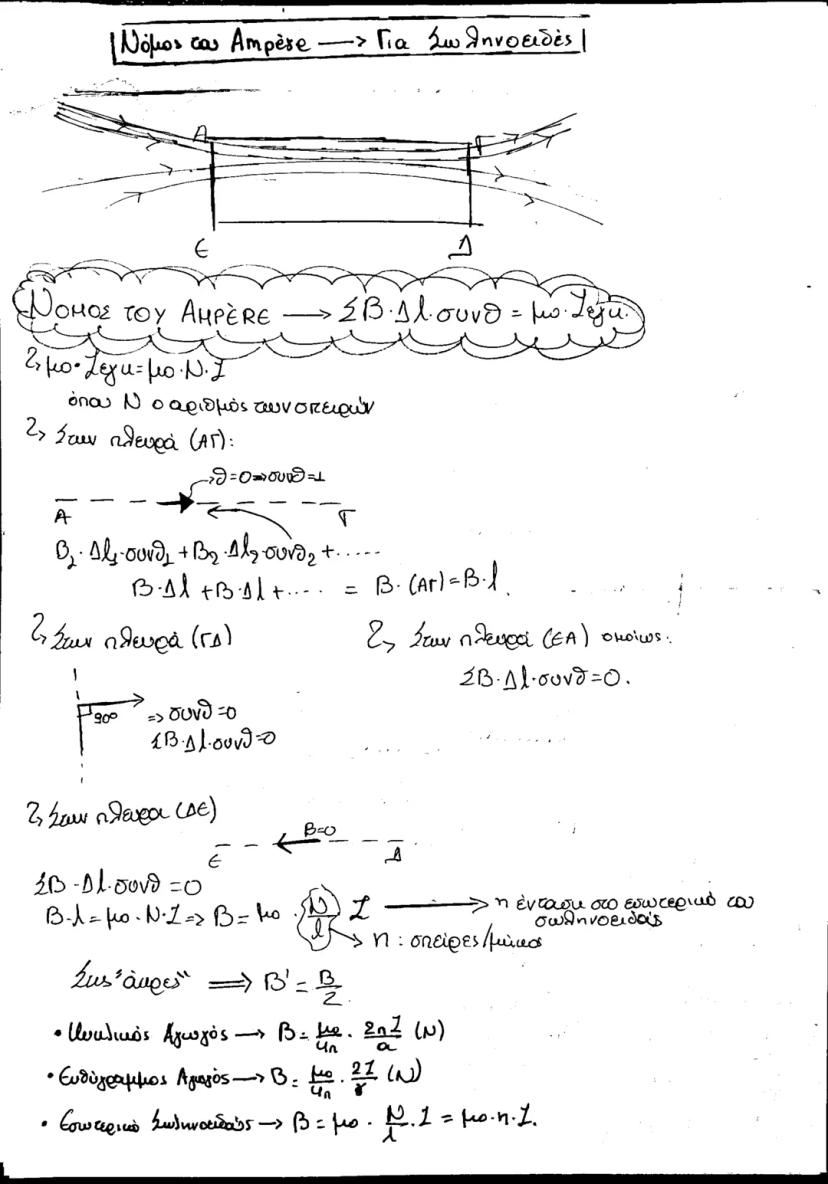 Νόμος του Ampère → Για Σωληνοειδές
Α Γ
Ε Δ
ΝΟΜΟΣ ΤΟΥ AMPÈRE → ΣΒ·Δl·συνθ = μο·Ιεγκ.
μο·Ιεγκ=μο·Ν·Ι
όπου Ν ο αριθμός των σπειρών
Στην πλευρά (ΑΓ):
θ=0⇒συνθ=1
Α Γ
Β1·Δl1·συνθ1+Β2·Δl2·συνθ2+.....
Β·Δl+Β·Δl+.... = Β·(ΑΓ)=Β·l.
Στην πλευρά (ΓΔ)
90°
=> συνθ=0
ΣΒ·Δl·συνθ=0
Στην πλευρά (ΕΑ) ομοίως:
ΣΒ·Δl·συνθ=0.
Στην πλευρα (ΔΕ)
Β=0
Ε Δ
ΣΒ·Δl·συνθ=0
Β·l=μο·Ν·Ι=> Β=μο·N/l I → η ένταση στο εσωτερικό του
σωληνοειδούς
n: σπείρες/μήκος
Στις "άκρες" ⇒ Β'=Β/2
• Κυκλικός Αγωγός → Β=μο/4π · 2πΙ/α (Ν)
• Ευθύγραμμος Αγωγός → Β=μο/4π · 2Ι/r (Ν)
• Εσωτερικό Σωληνοειδούς → Β=μο·N/l·Ι=μο·n·Ι.